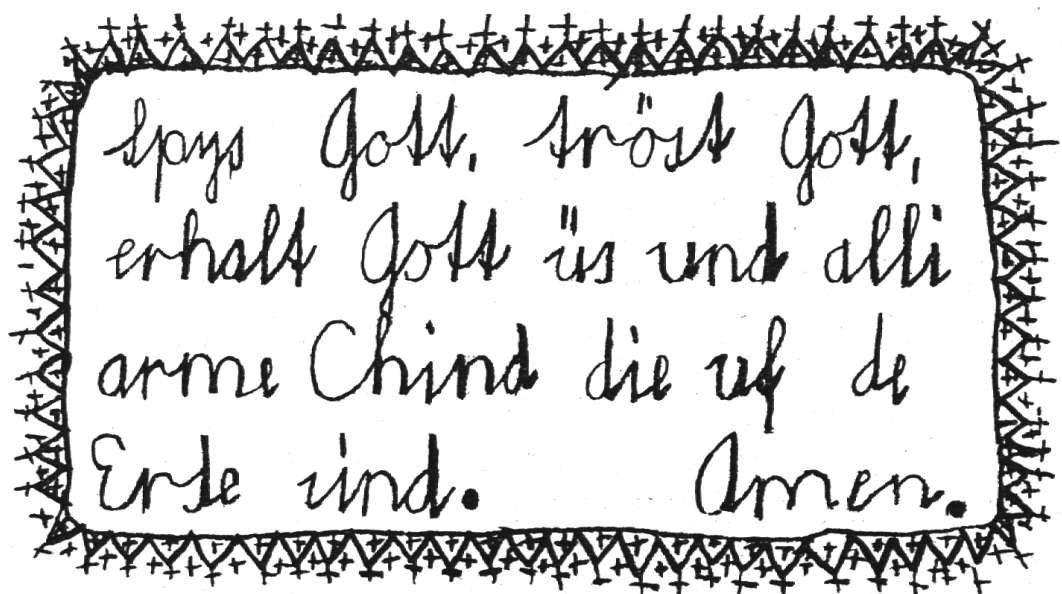 Spys Gott, tröst Gott,
erhalt Gott üs und alli
arme Chind die uf de
Erde sind. Amen.